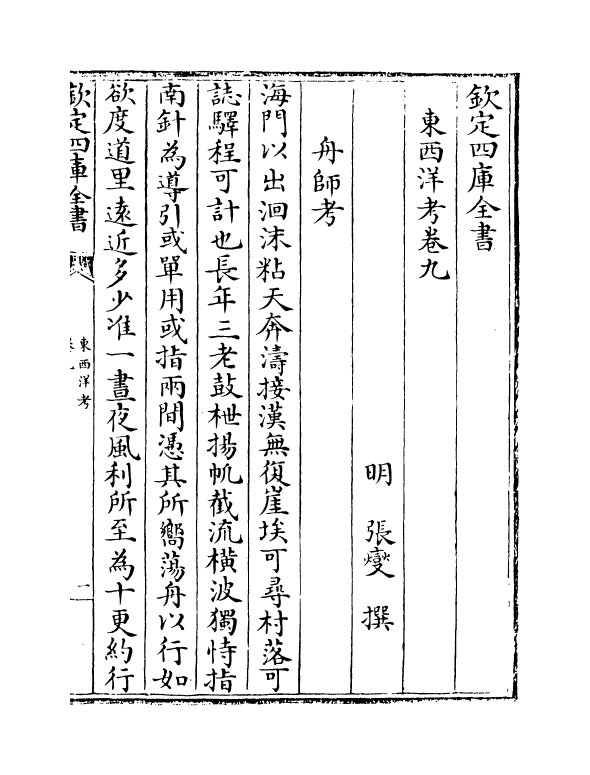 欽定四庫全書
東西洋考卷九
明 張燮 撰
舟師考
海門以出洄沫粘天奔濤接漢無復崖埃可尋村落可
誌驛程可計也長年三老鼓枻揚帆截流橫波獨恃指
南針為導引或單用或指兩間憑其所嚮蕩舟以行如
欲度道里遠近多少准一晝夜風利所至為十更約行
欽定四庫全書
東西洋考
二